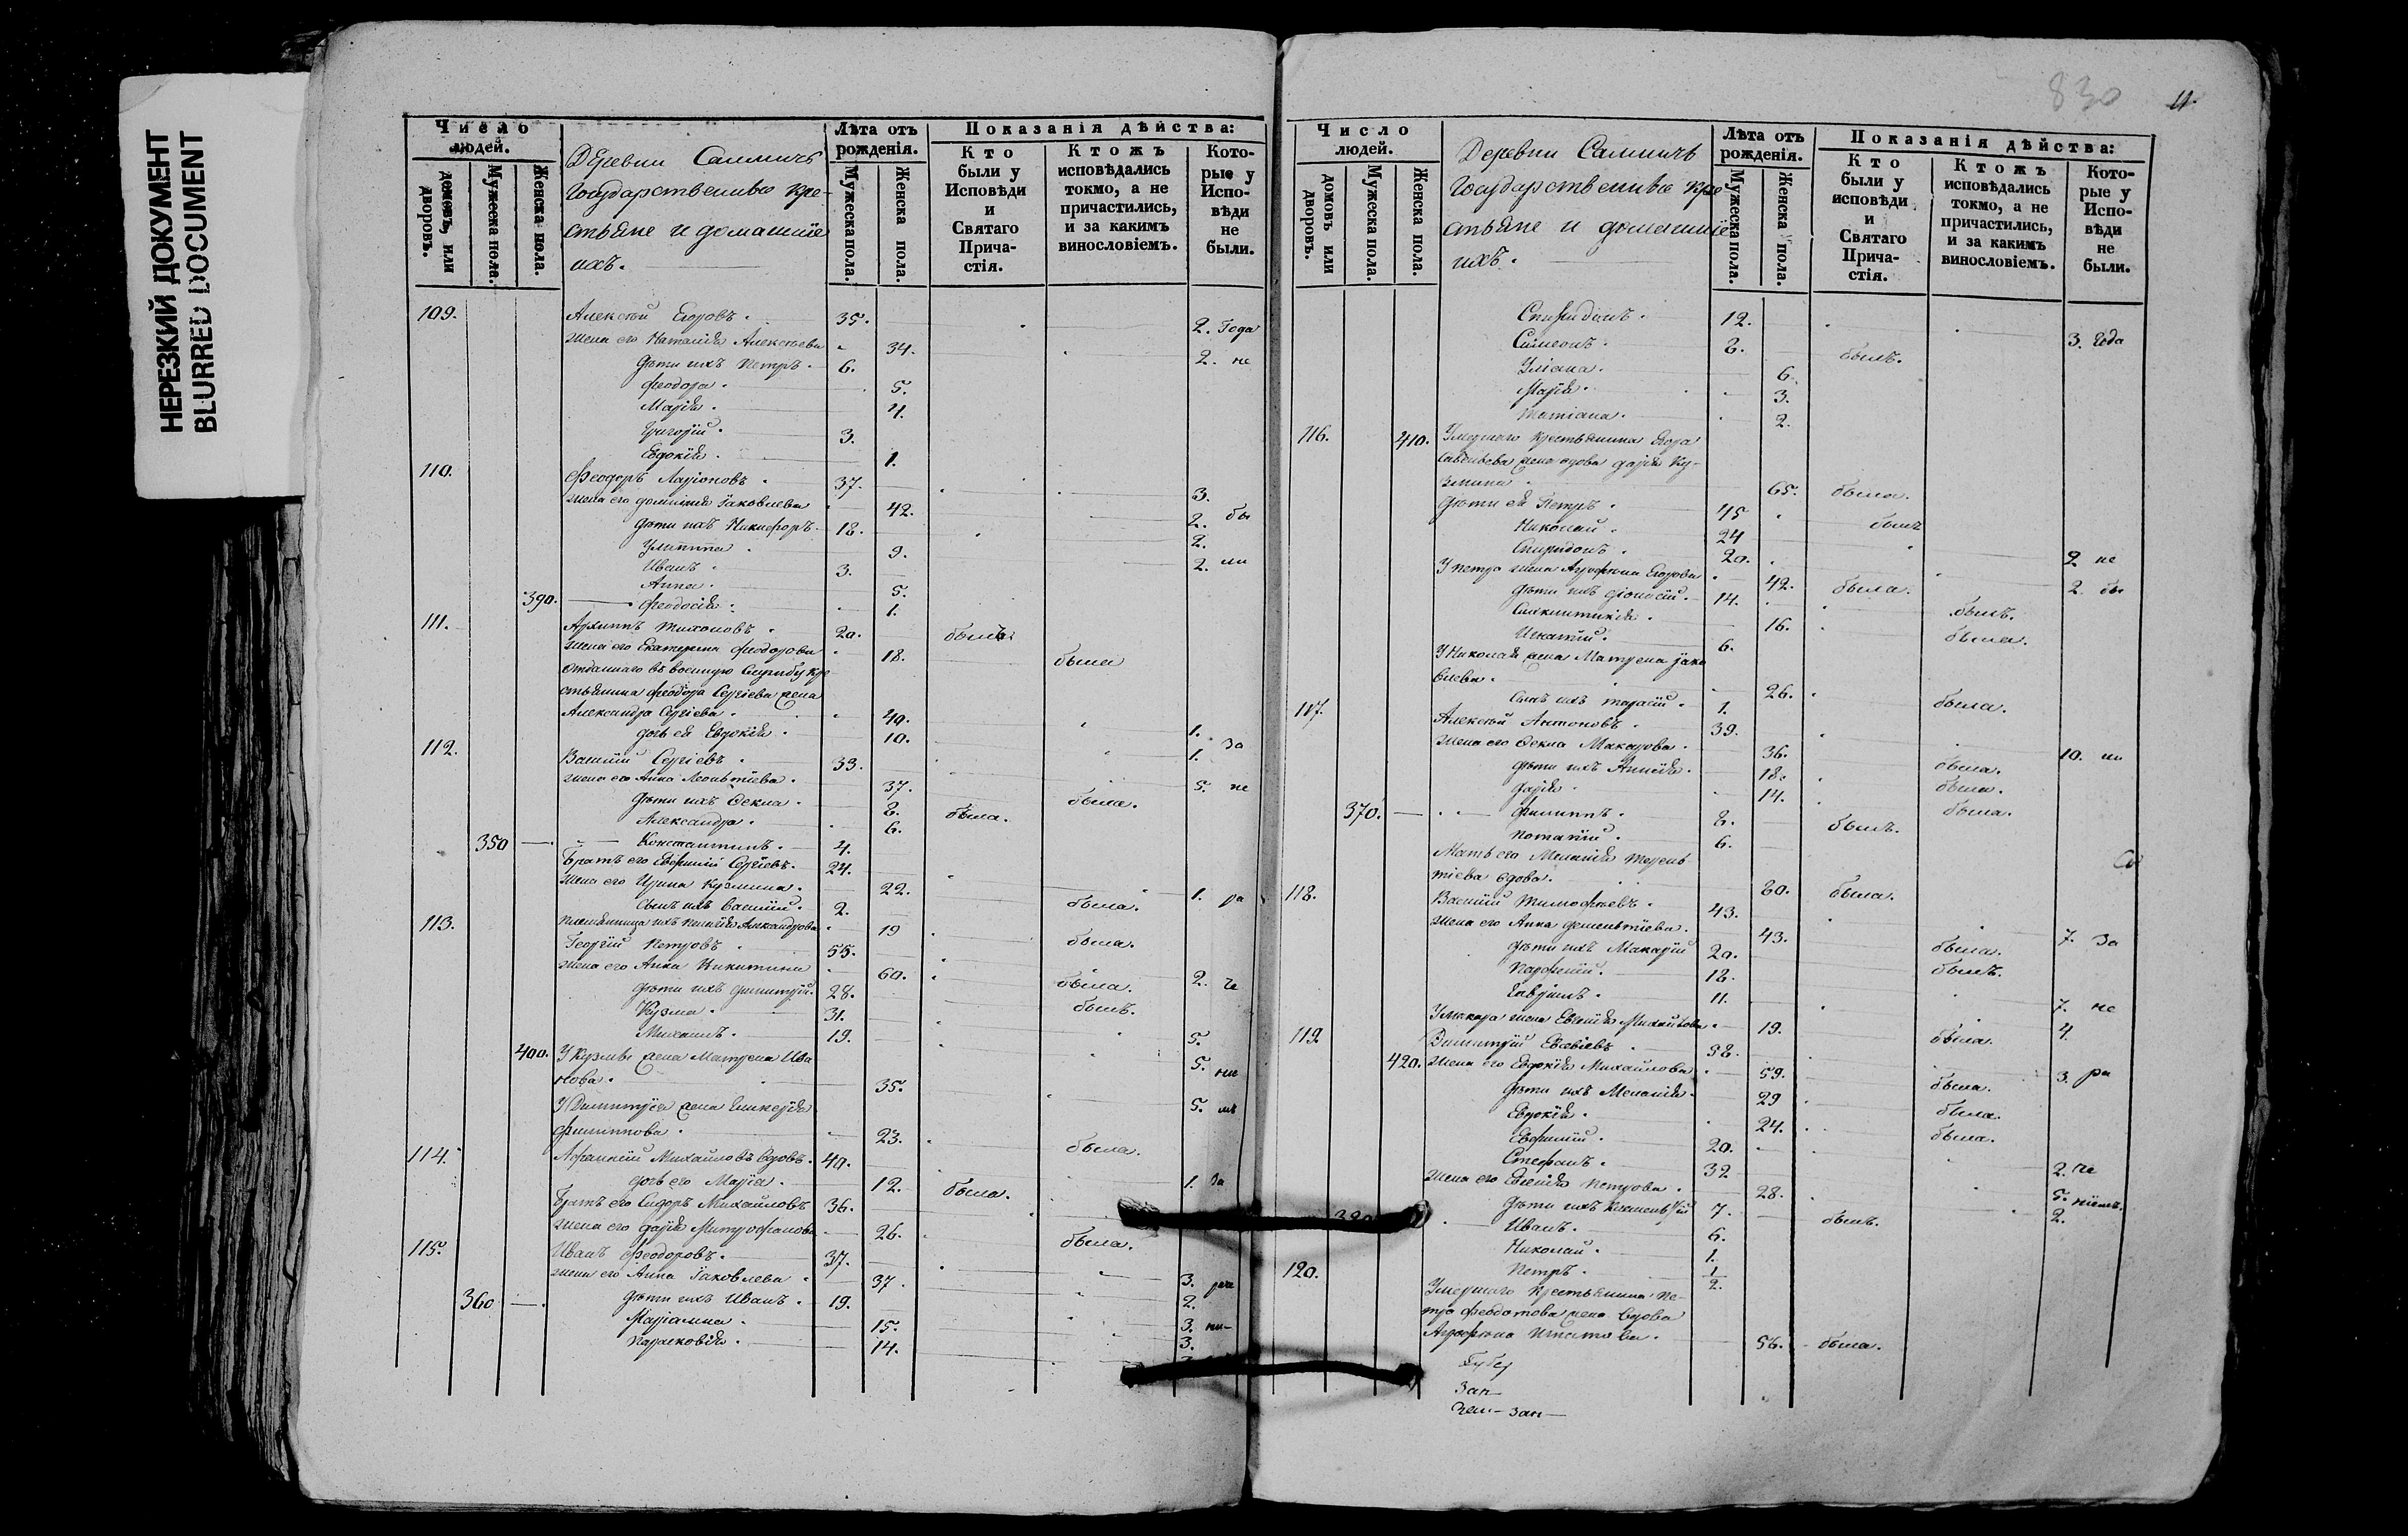 НЕРЕЗКИЙ ДОКУМЕНТ
BLURRED DOCUMENT
Число людей.
домовъ, или дворовъ.
Мужеска пола.
Женска пола.
Деревни Саллничъ
Государственные кре-
стьяне и домашніе
ихъ.
Лѣта отъ рожденія.
Мужеска пола.
Женска пола.
Показанія дѣйства:
Кто были у Исповѣди и Святаго Прича-стія.
Ктожъ исповѣдались токмо, а не причастились, и за какимъ винословіемъ.
Кото-рые у Испо-вѣди не были.
109. Алексѣй Егоровъ. 35. 2. Года
жена его Наталія Алексѣева 34. 2. не
дѣти ихъ Петръ. 6.
Феодора. 5.
Марія. 4.
Григорій. 3.
Евдокія. 1.
110. Феодоръ Ларіоновъ. 37. 3.
жена его Домникія Іаковлева 42. 2. бы
дѣти ихъ Никифоръ 18. 2.
Улита 9. 2. ли
Иванъ 3.
Анна. 5.
390. Феодосія. 1.
111. Архиппъ Тихоновъ. 20. былъ
жена его Екатерина Феодорова 18. была
Отданнаго въ военную Службу кре
стьянина Феодора Сергіева жена
Александра Сергіева. 40. 1.
дочь ея Евдокія. 10. 1. За
112. Василій Сергіевъ. 33. 5. не
жена его Анна Леонтіева. 37. была.
дѣти ихъ Ѳекла. 8. была.
Александра. 6.
350 Константинъ. 4.
Братъ его Евфимій Сергіевъ. 24. 1. ра
жена его Ирина Кузмина. 22. была.
сынъ ихъ Василій. 2.
племянница ихъ Александрова 19 была.
113. Георгій Петровъ 55. 2. че
жена его Анна Никитина 60. была.
дѣти ихъ Димитрій. 28. былъ.
Кузма. 31. 5.
Михаилъ. 19. 5. ні
400. У Кузмы жена Матрена Ива
нова. 35. 5. мъ
У Димитрія жена Гликерія
Филиппова. 23. была.
114. Афанасій Михайловъ вдовъ. 40. 1. За
дочь его Марія. 12. была.
Братъ его Сидоръ Михайловъ 36.
жена его Дарія Митрофанова 26. была.
115. Иванъ Феодоровъ. 37. 3. ра
жена его Анна Іаковлева 37. 2.
360 дѣти ихъ Иванъ. 19. 3. ни-
Маріамна. 15. 3.
Парасковія. 14.
830
11.
Число людей.
домовъ или дворовъ.
Мужеска пола.
Женска пола.
Деревни Саллничъ
Государственные кре
стьяне и домашніе
ихъ.
Лѣта отъ рожденія.
Мужеска пола.
Женска пола.
Показанія дѣйства:
Кто были у исповѣди и Святаго Прича-стія.
Ктожъ исповѣдались токмо, а не причастились, и за какимъ винословіемъ.
Кото-рые у Испо-вѣди не были.
Спиридонъ. 12. 3. Года
Симеонъ. 8. былъ.
Уліана. 6.
Марія. 3.
Татіана. 2.
116. 410. Умершаго крестьянина Егора
Савельева жена вдова Дарія Ку-
змина 65. была.
дѣти ея Петръ. 45 былъ
Николай. 24
Спиридонъ. 20. 2 не
У Петра жена Агрофена Егорова 42. была. 2. бы
дѣти ихъ Діонисій. 14. былъ.
Синклитикія. 16. была.
Игнатій. 6.
У Николая жена Матрена Јако
влева. 26. была.
Сынъ ихъ Тарасій. 1.
117. Алексѣй Антоновъ. 39. 10. ли
жена его Ѳекла Макарова. 36. была.
дѣти ихъ Анисія. 18. была.
Дарія. 14. была.
370. Филиппъ. 8. былъ.
Потапій. 6.
Мать его Меланія Терень
тіева вдова. 80. была.
118. Василій Тимофѣевъ. 43. 7. За
жена его Анна Дементіева. 43. была.
дѣти ихъ Макарій 20. былъ.
Парфеній. 18. 7. не
Гавріилъ. 11. 4.
У Макара жена Евгенія Михайлова 19. была.
119. Димитрій Евсевіевъ 58. 3. ра
420. жена его Евдокія Михайлова 59. была.
дѣти ихъ Меланія. 29 была.
Евдокія. 24. была.
Евфимій. 20. 2. че
Стефанъ. 32 5. ніемъ.
жена его Евгенія Петрова. 28. 2.
дѣти ихъ Климентій 7. былъ.
380 Иванъ. 6.
Николай. 1.
Петръ. 1/2.
120. Умершаго крестьянина Пе-
тра Феодотова жена вдова
Агрофена Игнатова. 56. была.
Зап
Зап